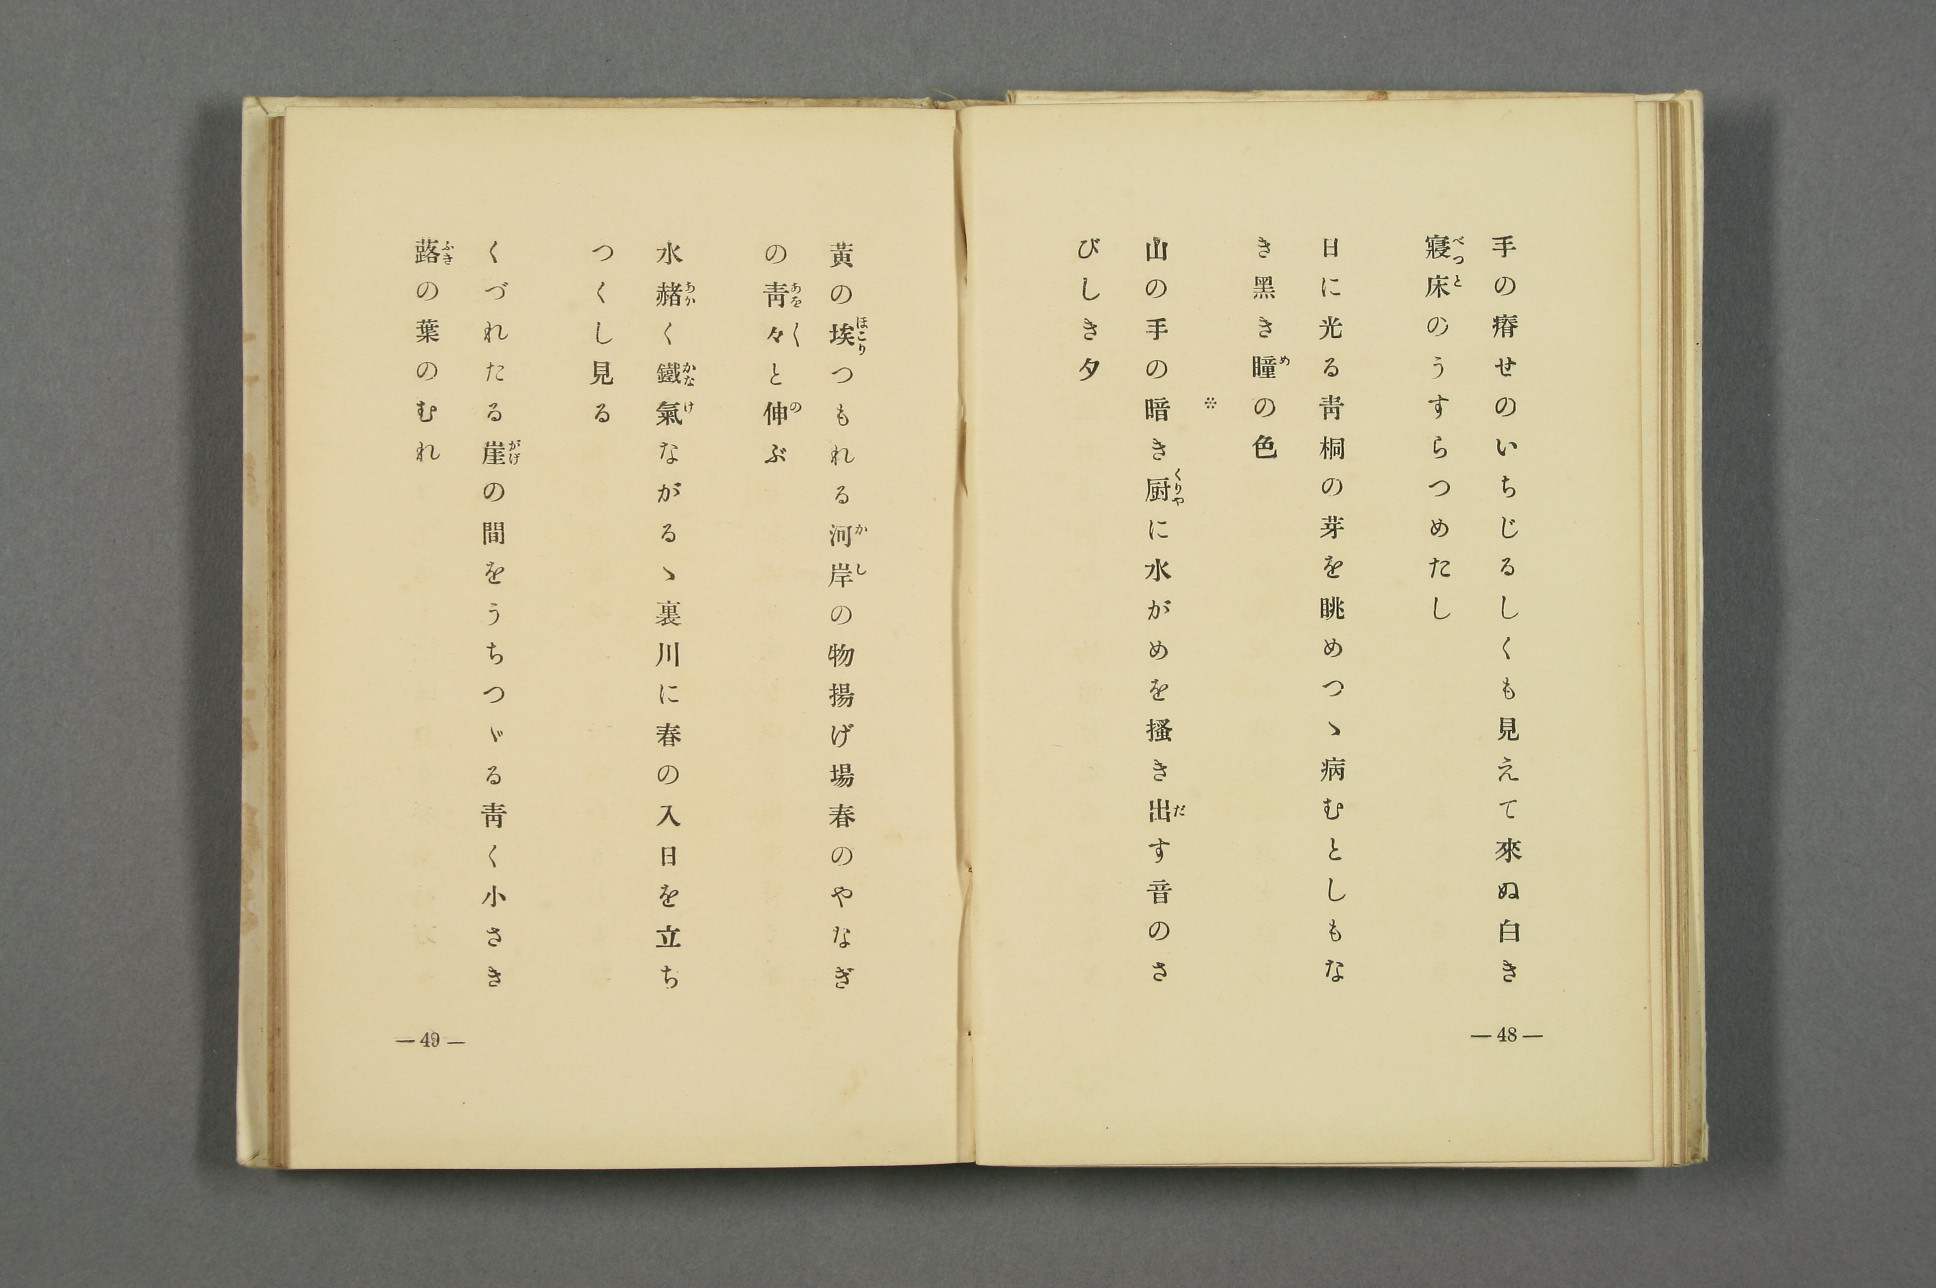 手の瘠せのいちじるしくも見えて來ぬ白き
寢床のうすらつめたし
日に光る靑桐の芽を眺めつゝ病むとしもな
き黑き瞳の色
＊
山の手の暗き厨に水がめを搔き出す音のさ
びしき夕
— 48 —
黃の埃つもれる河岸の物揚げ場春のやなぎ
の靑々と伸ぶ
水赭く鐵氣ながるゝ裏川に春の入日を立ち
つくし見る
くづれたる崖の間をうちつゞる靑く小さき
蕗の葉のむれ
— 49 —